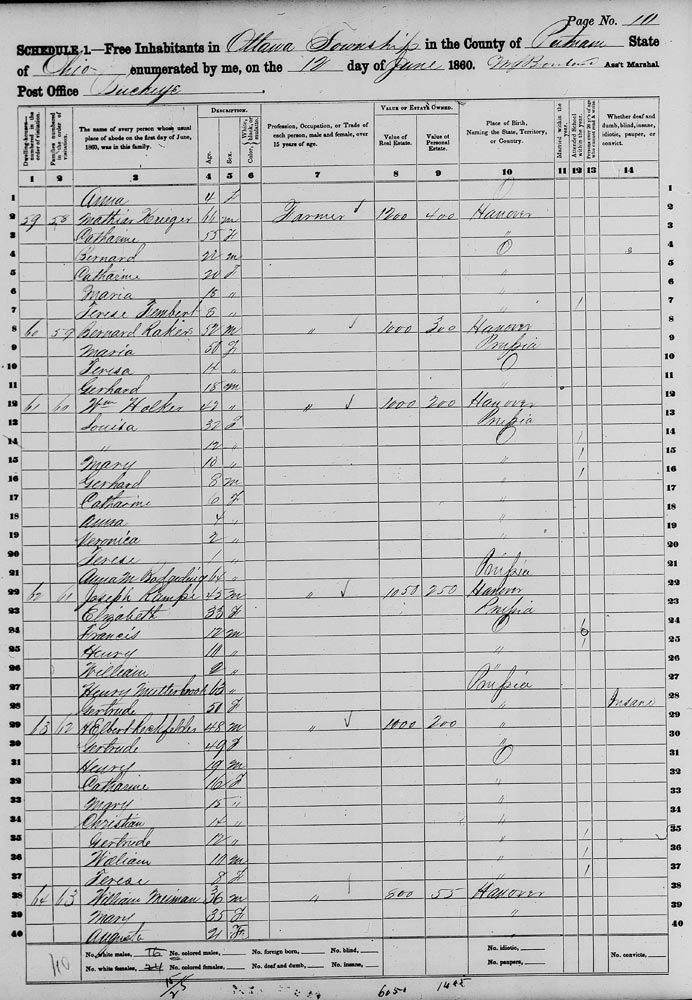 Page No. 10
SCHEDULE 1.—Free Inhabitants in Ottawa Township in the County of Putnam State
of Ohio enumerated by me, on the 12 day of June 1860. Ass't Marshal.
Post Office Buckeye
Dwelling-houses—numbered in the order of visitation.
Families numbered in the order of visitation.
The name of every person whose usual place of abode on the first day of June, 1860, was in this family.
DESCRIPTION.
Age.
Sex.
Color, White, black, or mulatto.
Profession, Occupation, or Trade of each person, male and female, over 15 years of age.
VALUE OF ESTATE OWNED.
Value of Real Estate.
Value of Personal Estate.
Place of Birth, Naming the State, Territory, or Country.
Married within the year.
Attended School within the year.
Persons over 20 y'rs of age who cannot read & write.
Whether deaf and dumb, blind, insane, idiotic, pauper, or convict.
1 2 3 4 5 6 7 8 9 10 11 12 13 14
1 Anna 4 F O 1
2 59 58 Mathias Krieger 61 m Farmer 1200 400 Hanover 2
3 Catharine 55 F " 3
4 Bernard 22 m O 4
5 Catharine 20 F " 5
6 Maria 18 " 6
7 Terese 8 " " / 7
8 60 59 Bernard Rakers 52 m " 1000 300 Hanover 8
9 Maria 50 F Prussia 9
10 Teresa 14 " O 10
11 Gerhard 18 m 11
12 61 60 Wm Holker 42 " " 1000 200 Hanover 12
13 Louisa 32 F Prussia 13
14 " 12 " O / 14
15 Mary 10 " " / 15
16 Gerhard 8 m " / 16
17 Catharine 6 F " 17
18 Anna 4 " " 18
19 Veronica 2 " " 19
20 Terese 1 " " 20
21 Anna M 64 " Prussia 21
22 62 61 Joseph Kampe 45 m " 1050 250 Hanover 22
23 Elizabeth 33 F Prussia 23
24 Francis 12 m O / 24
25 Henry 10 " " / 25
26 William 2 " " 26
27 Henry 63 " Prussia 27
28 Gertrude 50 F " Insane 28
29 63 62 48 m " 1000 200 " 29
30 Gertrude 49 F " 30
31 Henry 19 m O 31
32 Catharine 16 F " 32
33 Mary 15 " " 33
34 Christian 14 " " 34
35 Gertrude 12 " " / 35
36 William 10 m " / 36
37 Terese 8 F " / 37
38 64 63 William Meiman 36 m " 800 55 Hanover 38
39 Mary 35 F " 39
40 Augusta 21 F " 40
No. white males, 16 No. colored males, No. foreign born, No. blind, No. idiotic, No. convicts,
No. white females, 24 No. colored females, No. deaf and dumb, No. insane, No. paupers,
40
15
6050